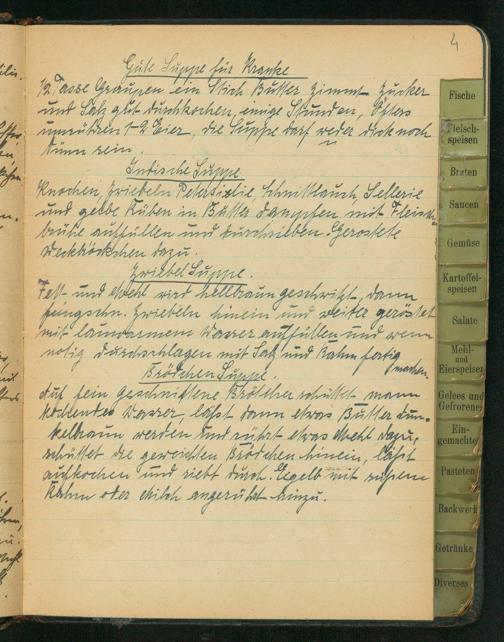 4
Gute Suppe für Kranke
1/2 Tasse Graupen ein Stich Butter Zimmt Zucker
und Salz gut durchkochen, einige Stunden, öfters
umrühren 1-2 Eier, die Suppe darf weder dick noch
dünn sein.
Indische Suppe
Knochen, Zwiebeln Petersilie, Schnittlauch, Sellerie
und gelbe Rüben in Butter dampfen mit Fleisch-
brühe auffüllen und durchrieben. Geröstete
Weckbröckchen dazu.
Zwiebel Suppe.
Fett und Mehl wird hellbraun geschwitzt, dann
feingschn. Zwiebeln hinein und weiter geröstet
mit lauwarmem Wasser auffüllen und wenn
nötig durchschlagen mit Salz und Rahm fertig
machen.
Brödchen Suppe.
Auf fein geschnittene Brötchen schüttet mann
kochendes Wasser, läßt dann etwas Butter dun-
kelbraun werden und rührt etwas Mehl dazu,
schüttet die geweichten Brödchen hinein, läßt
aufkochen und riebt durch. Eigelb mit süßem
Rahm oder Milch angerührt hinzu.
Fische
Fleisch-
speisen
Braten
Saucen
Gemüse
Kartoffel-
speisen
Salate
Mehl-
und
Eierspeisen
Gelees und
Gefrorene
Ein-
gemachte
Pasteten
Backwerk
Getränke
Diverses